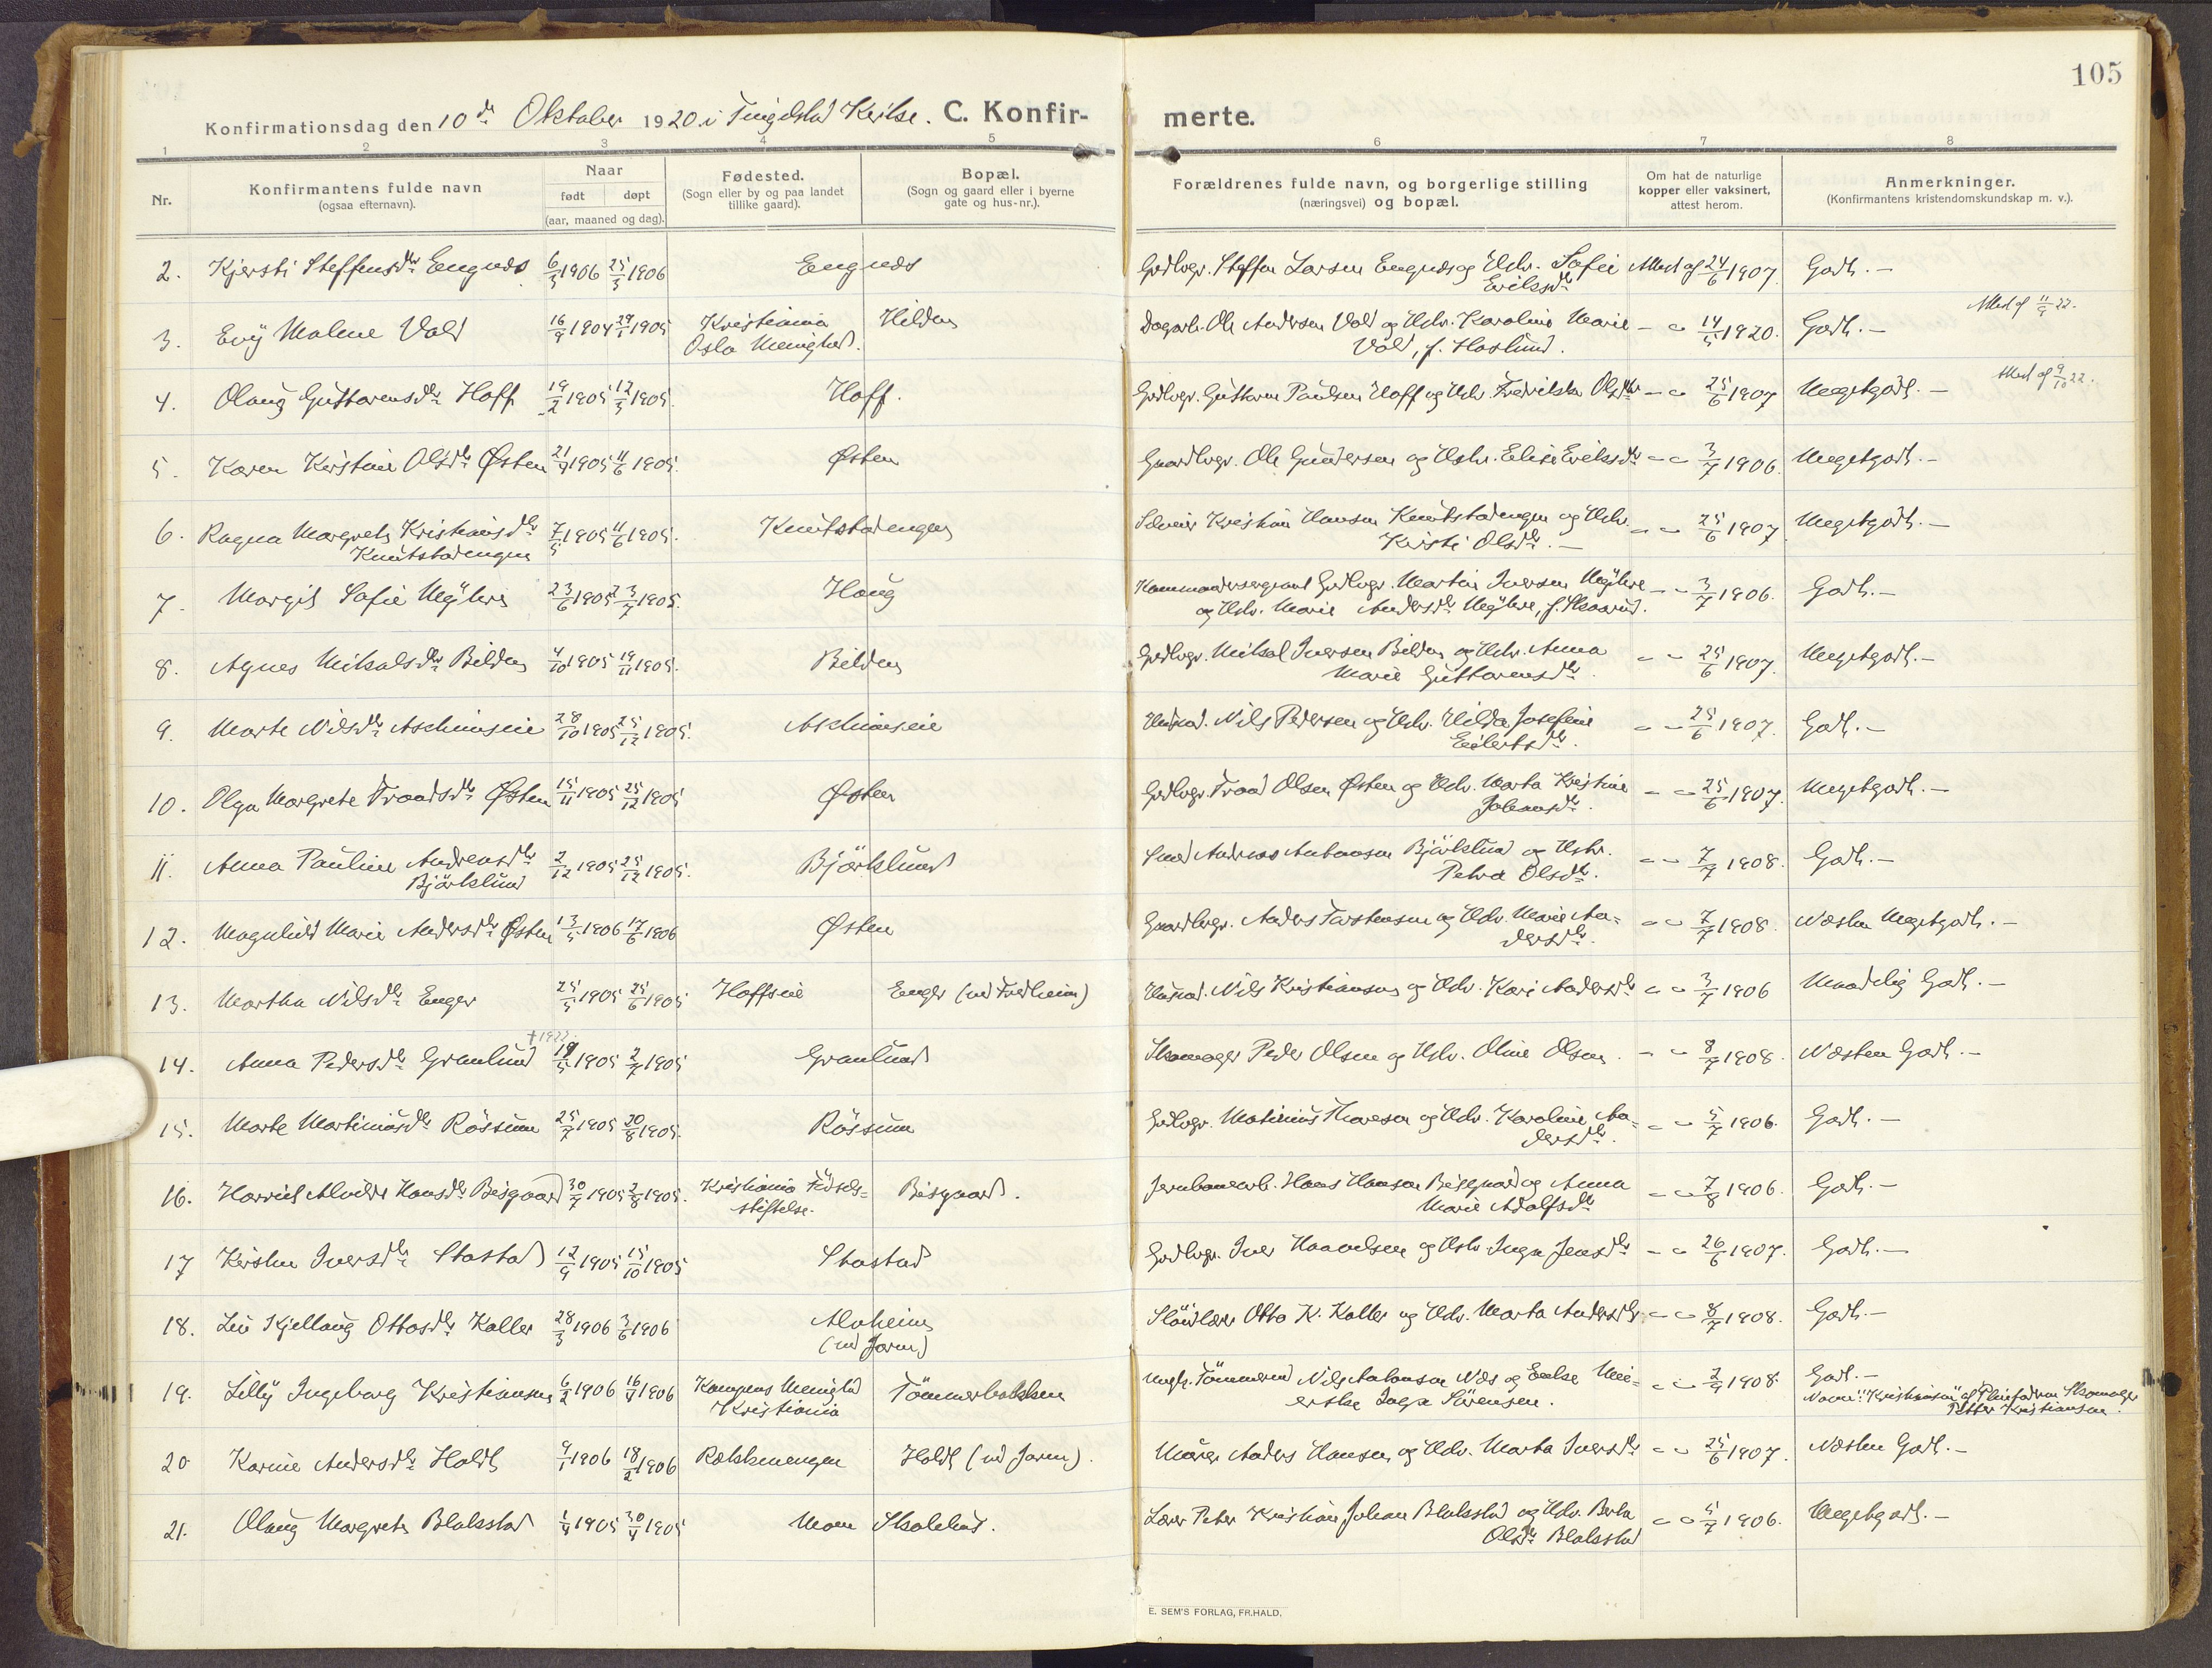 105
Konfirmationsdag den 10de Oktober 1920 i Tingelstad Kirke. C. Konfirmerte.
1 2 3 4 5 6 7 8
Nr.
Konfirmantens fulde navn
(ogsaa efternavn).
Naar
født døpt
(aar, maaned og dag).
Fødested.
(Sogn eller by og paa landet
tillike gaard).
Bopæl.
(Sogn og gaard eller i byerne
gate og hus-nr.).
Forældrenes fulde navn, og borgerlige stilling
(næringsvei) og bopæl.
Om hat de naturlige
kopper eller vaksinert,
attest herom.
Anmerkninger.
(Konfirmantens kristendomskundskap m. v.).
2. Kjersti Steffensdtr Engnæs 6/3 1906 25/3 1906 Engnæs Grdbrgr. Steffen Larsen Engnæs og Hstr. Sofie Eriksdtr Med af 24/6 1907 Godt.-
3. Evy Malene Vold 16/9 1904 29/1 1905 Kristiania Oslo Menighed. Hilden Dagarb. Ole Andersen Vold og Hstr. Karoline Marie Vold, f. Haslund. - " 14/5 1920. Godt.- Med af 11/9 22.
4. Olaug Guttormsdtr Hoff 19/2 1905 12/3 1905. Hoff. Grdbrgr. Guttorm Paulsen Hoff og Hstr. Fredrikke Olsdtr - " 25/6 1907 Megetgodt.- Med af 9/10 22.
5. Karen Kristine Olsdtr Østen 21/4 1905 11/6 1905. Østen Gaardbrgr. Ole Gundersen og Hstr. Elise Eriksdtr - " 3/7 1906. Megetgodt.-
6. Ragna Margrete Kristiansdtr Knutstadengen 7/5 1905 11/6 1905. Knutstadengen Selveier Kristian Hansen Knutstadengen og Hstr. Kristi Olsdtr.- " " 25/6 1907 Megetgodt.-
7. Margit Sofie Myhre 23/6 1905 23/7 1905. Haug Kommandersergeant Grdbrgr. Martin Iversen Myhre og Hstr. Marie Andersdtr Myhre, f. Skaarud. - " 3/7 1906. Godt.-
8. Agnes Mikalsdtr Bilden 4/10 1905 19/11 1905. Bilden Grdbrgr. Mikal Iversen Bilden og Hstr. Anna Marie Guttormsdtr. " " 25/6 1907. Megetgodt.-
9. Marte Nilsdtr Aschimseie 28/10 1905 25/12 1905. Aschimseie Husmd. Nils Pedersen og Hstr. Hilda Josefine Eilertsdtr. " - 25/6 1907. Godt.-
10. Olga Margrete Traadsdtr Østen 15/11 1905 25/12 1905 Østen Grdbrgr. Traad Olsen Østen og Hstr. Marta Kristine Johansdtr. - " 25/6 1907. Megetgodt.-
11. Anna Pauline Andreasdtr Björklund 2/12 1905 25/12 1905. Björklund Smed Andreas Antonsen Björklund og Hstr. Petra Olsdtr. " - 7/7 1908. Godt.-
12. Magnhild Marie Andersdtr Østen 13/5 1906 17/6 1906 Østen Gaardbrgr. Anders Torstensen og Hstr. Marie Andersdtr. " " 7/7 1908. Næsten Megetgodt.-
13. Martha Nilsdtr Enger 25/5 1905 25/6 1905 Hoffseie Enger (ved Fredheim) Husmd. Nils Kristiansen og Hstr. Kari Andersdtr " " 3/7 1906 Maadelig Godt.-
†1922.
14. Anna Pedersdtr Granlund 19/5 1905 2/7 1905 Granlund Skomager Peder Olsen og Hstr. Oline Olsen. - " 8/7 1908. Næsten Godt.-
15. Marte Martiniusdtr Røssum 25/7 1905 20/8 1905. Røssum Grdbrgr. Matinius Thoresen og Hstr. Karoline Andersdtr. - " 5/7 1906. Godt.-
16. Harriet Alvilde Hansdtr Bisgaard 30/7 1905 2/8 1905. Kristiania Födselsstiftelse. Bisgaard. Jernbanearb. Hans Hansen Bisgaard og Anna Marie Adolfsdtr - " 7/8 1906. Godt.-
17 Kirsten Iversdtr Stastad 12/9 1905 15/10 1905 Stastad Grdbrgr. Iver Haavelsen og Hstr. Inga Jensdtr - " 26/6 1907. Godt.-
18. Liv Kjellaug Ottosdtr Koller 28/3 1906 3/6 1906 Alvheim (ved Jaren) Slöidlærer Otto K. Koller og Hstr. Marta Andersdtr - " 8/7 1908. Godt.-
19. Lilly Ingeborg Kristiansen 6/2 1906 16/4 1906 Kampens Menighed Kristiania Tömmerbakken Ungk. Tömmermd Nils Antonsen Næs og Enke Meierske Inga Sörensen. " " 2/9 1908. Godt.- Navnet "Kristiansen" af Pleiefaderen Skomager Petter Kristiansen.
20 Karine Andersdtr Holdt 9/1 1906 18/2 1906 Rækkenengen Holdt (ved Jaren). Murer Anders Hansen og Hstr. Marta Iversdtr " " 25/6 1907. Næsten Godt.-
21. Olaug Margrete Blakstad 1/4 1905 30/4 1905 Moen Skolehus. Lærer Peter Kristian Johan Blakstad og Hstr. Berta Olsdtr Blakstad " " 5/7 1906. Megetgodt.-
E. SEM'S FORLAG, FR.HALD.